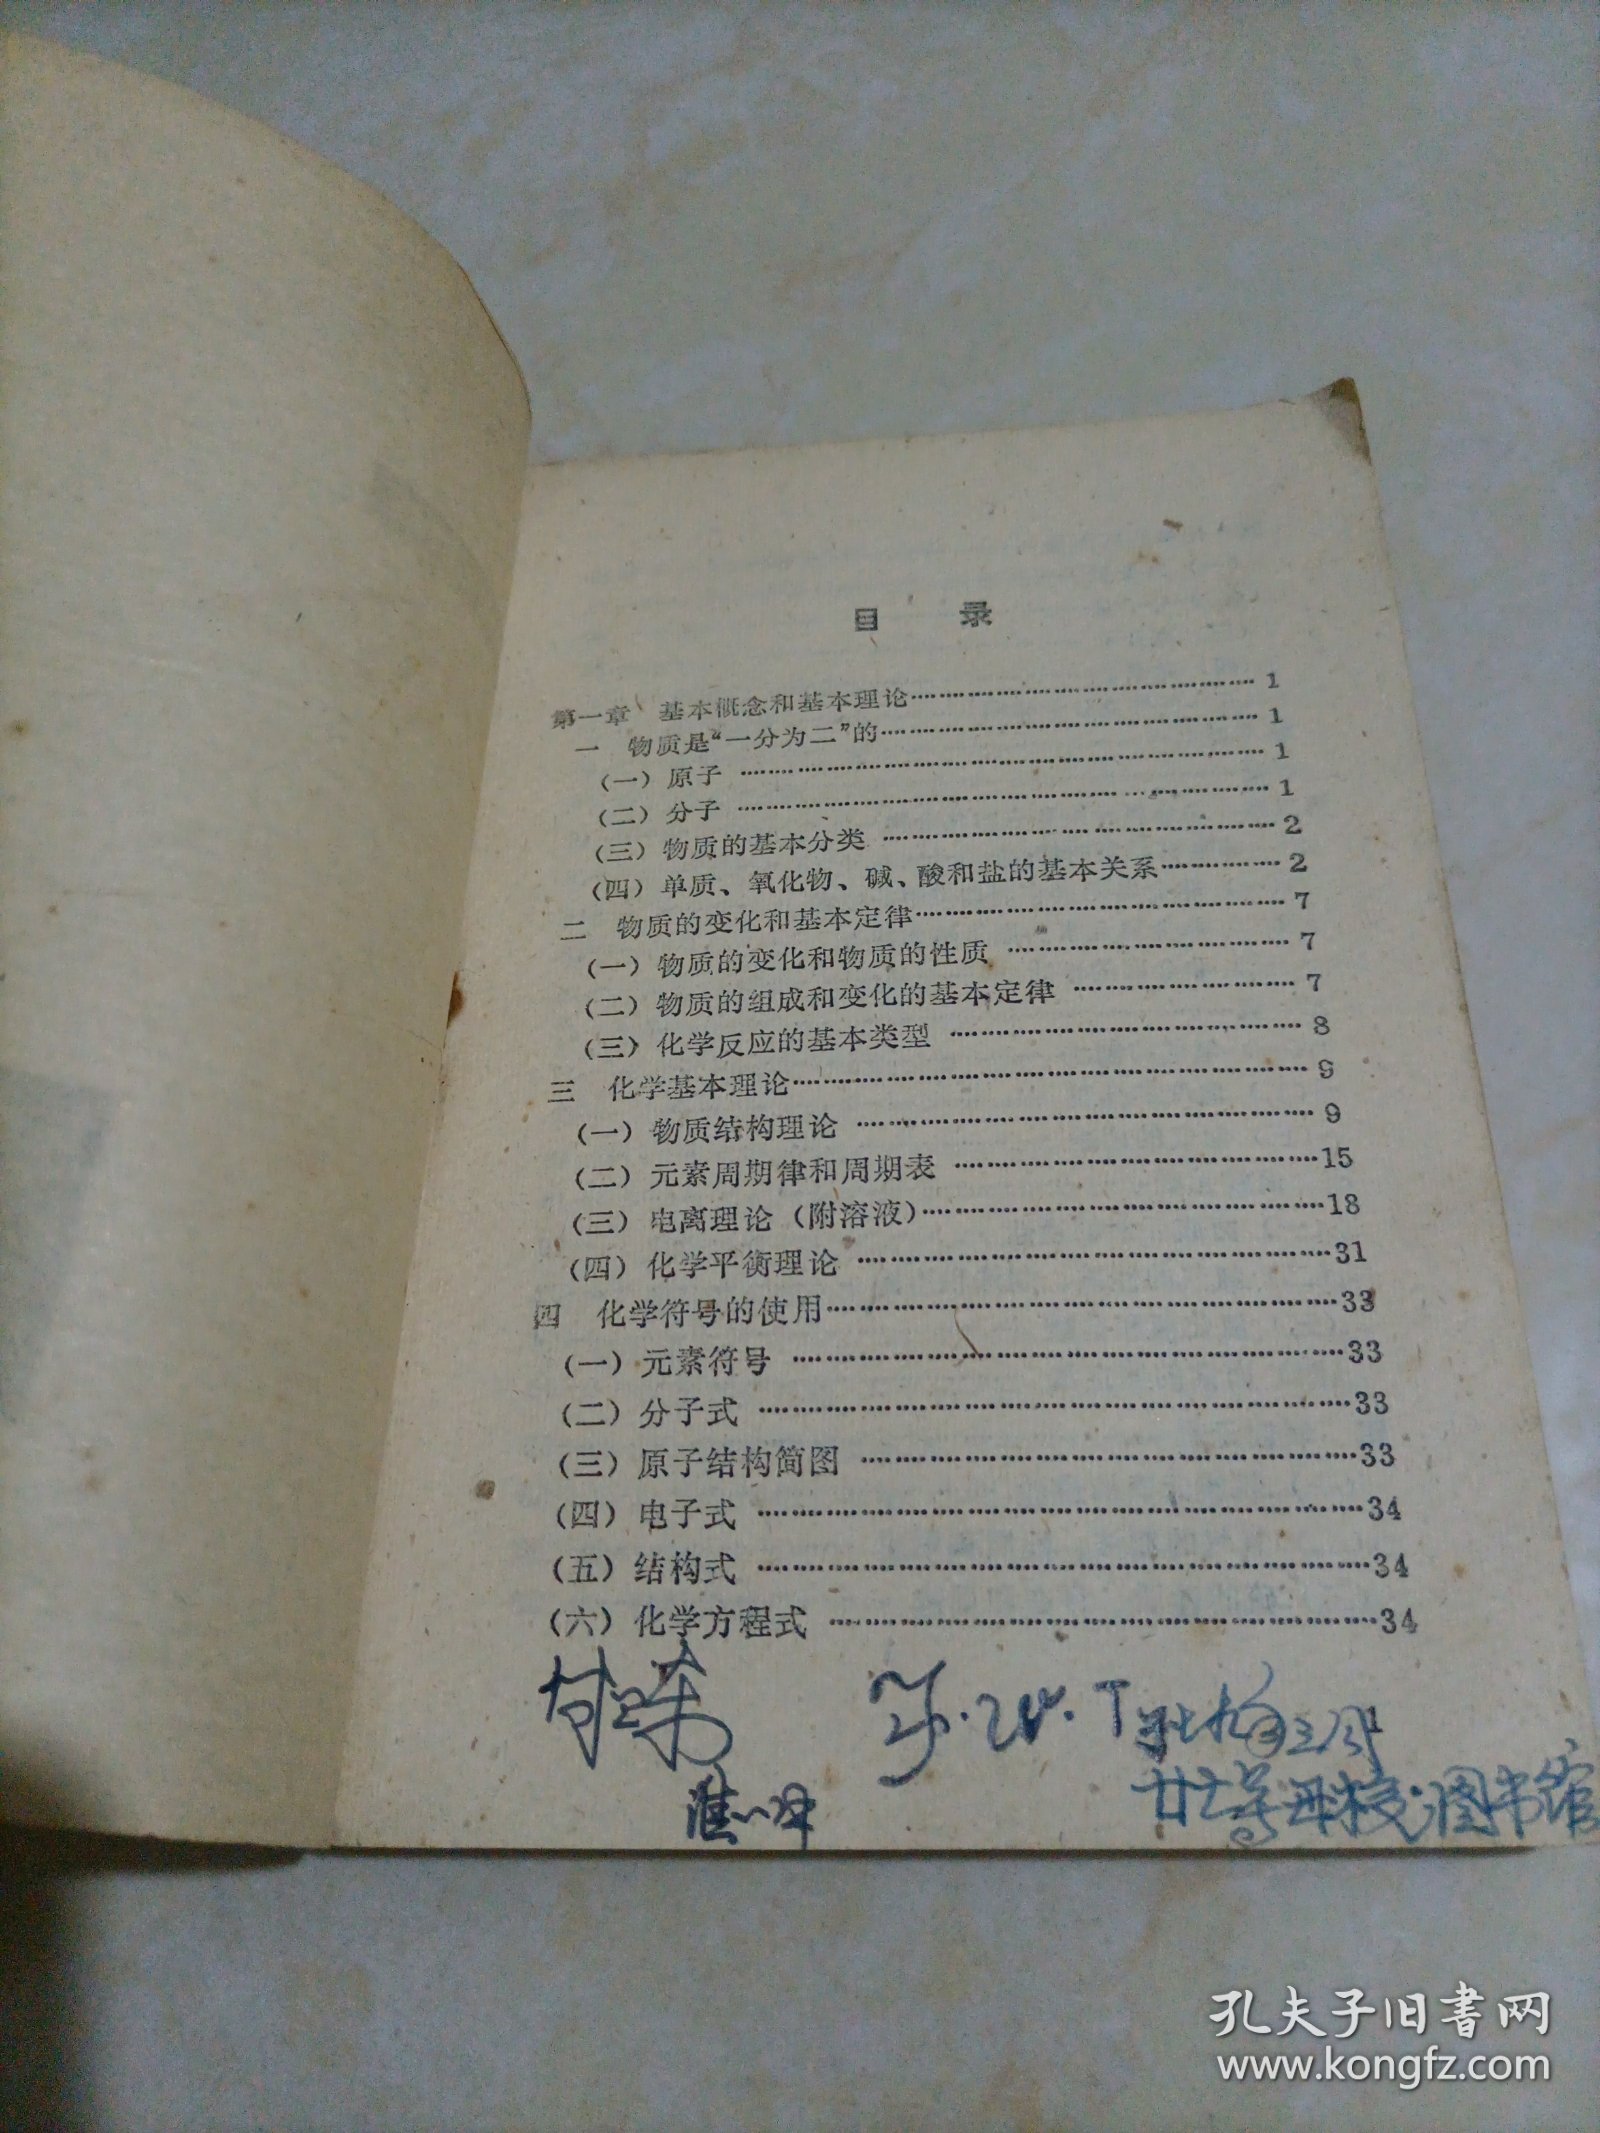 目 录
第一章 基本概念和基本理论……………………………………1
一 物质是“一分为二”的……………………………………1
(一)原子……………………………………1
(二)分子……………………………………1
(三)物质的基本分类……………………………………2
(四)单质、氧化物、碱、酸和盐的基本关系……………2
二 物质的变化和基本定律……………………………………7
(一)物质的变化和物质的性质……………………………7
(二)物质的组成和变化的基本定律………………………7
(三)化学反应的基本类型……………………………………8
三 化学基本理论……………………………………9
(一)物质结构理论……………………………………9
(二)元素周期律和周期表……………………………………15
(三)电离理论(附溶液)……………………………………18
(四)化学平衡理论……………………………………31
四 化学符号的使用……………………………………33
(一)元素符号……………………………………33
(二)分子式……………………………………33
(三)原子结构简图……………………………………33
(四)电子式……………………………………34
(五)结构式……………………………………34
(六)化学方程式……………………………………34
图书馆
孔夫子旧书网
www.kongfz.com